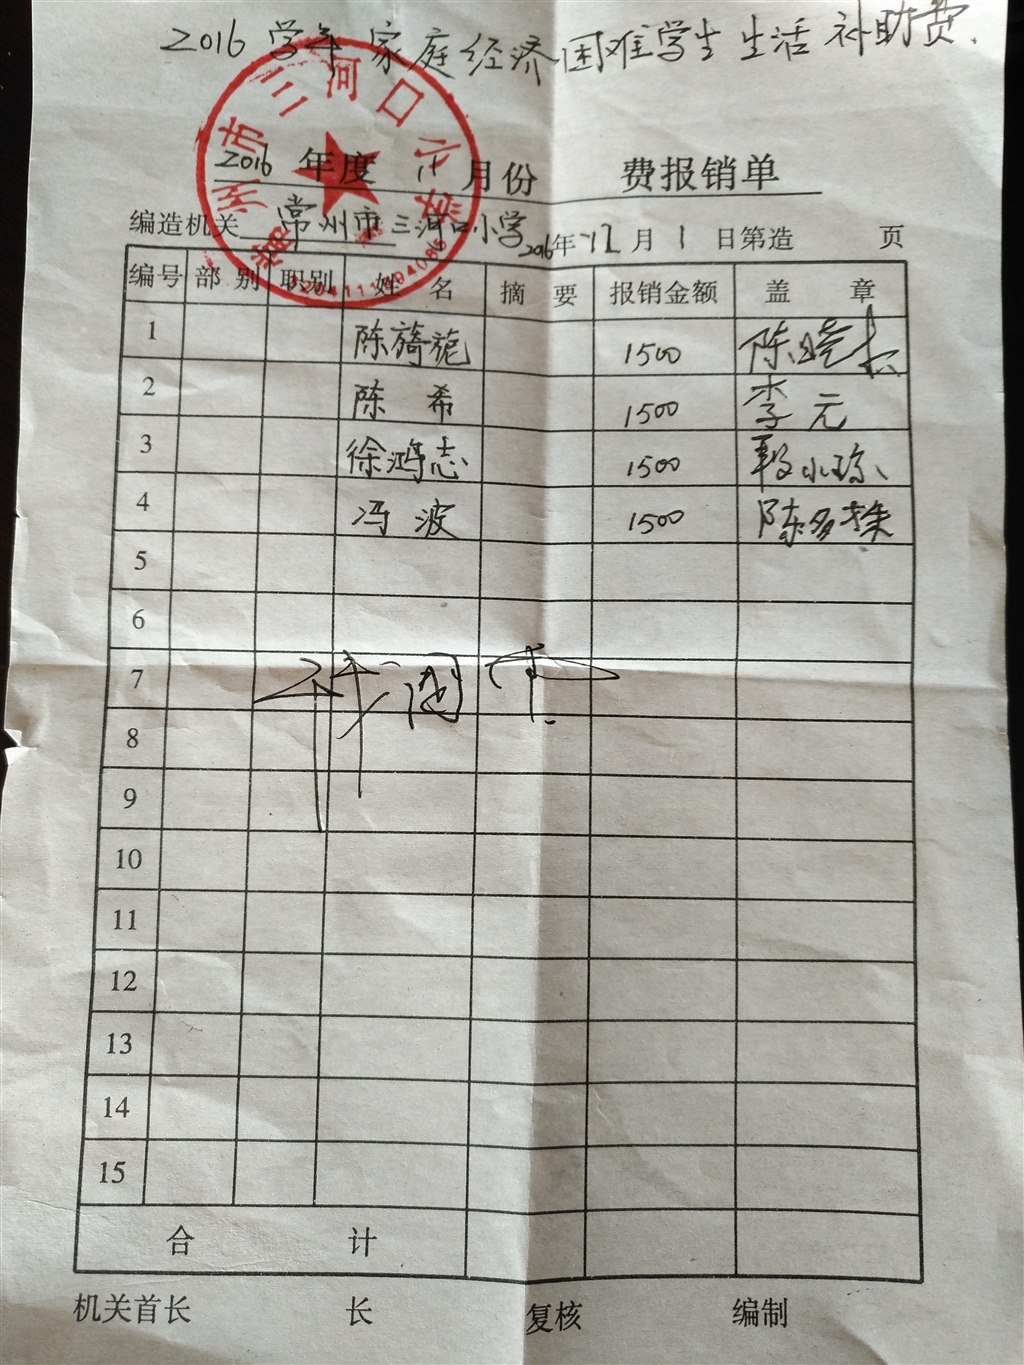 2016学年家庭经济困难学生生活补助费.
常州市三河口小学
2016 年度 月份 费报销单
编造机关 常州市三河口小学 2016年12月1日第造 页
编号 部别 职别 姓名 摘要 报销金额 盖章
1 陈旖旎 1500 陈晓
2 陈希 1500 李元
3 徐鸿志 1500
4 冯波 1500 陈多
5
6
7
8
9
10
11
12
13
14
15
合计
机关首长 长 复核 编制